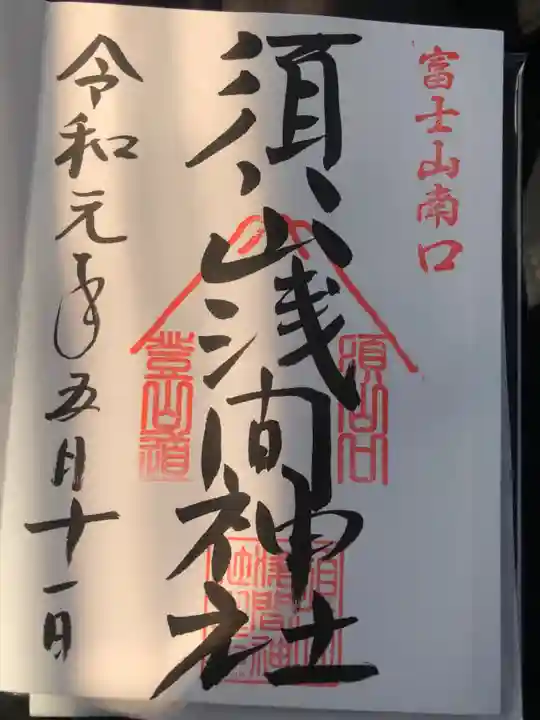 富士山南口
須山口
登山道
須山浅間神社
令和元年五月十一日